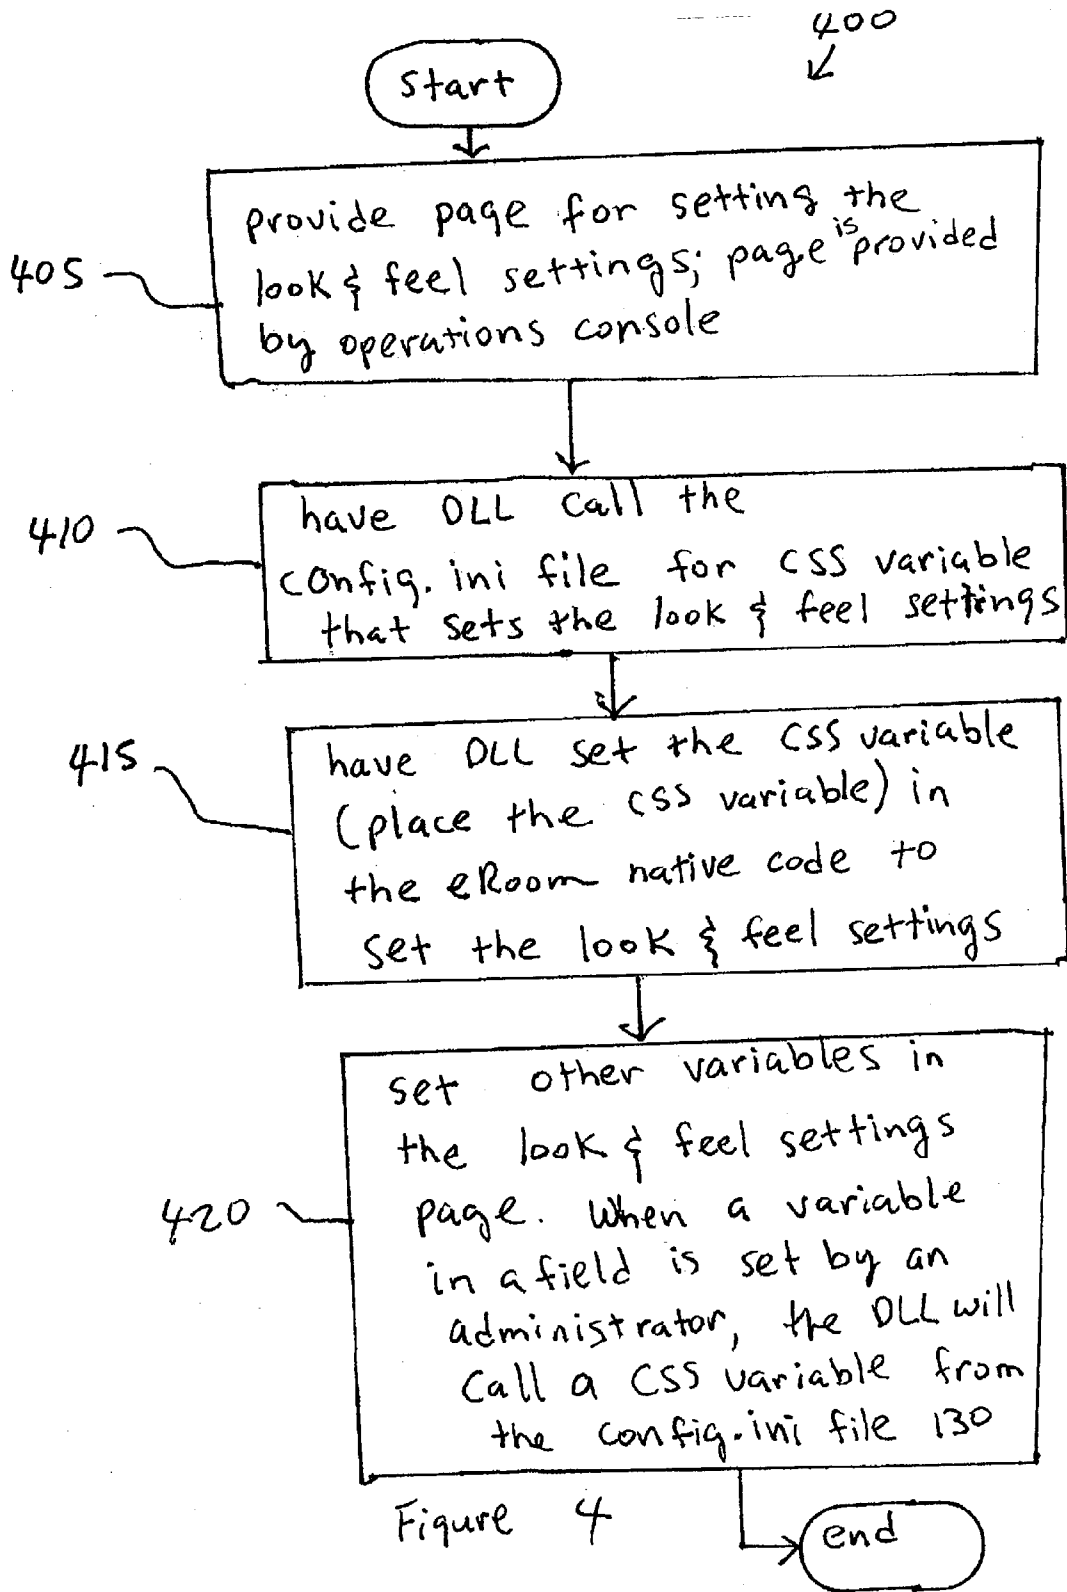 400
start
405
provide page for setting the
look & feel settings; page is provided
by operations console
410
have DLL call the
config.ini file for CSS variable
that sets the look & feel settings
415
have DLL set the CSS variable
(place the CSS variable) in
the eRoom native code to
set the look & feel settings
420
set other variables in
the look & feel settings
page. When a variable
in a field is set by an
administrator, the DLL will
call a CSS variable from
the config.ini file 130
Figure 4
end